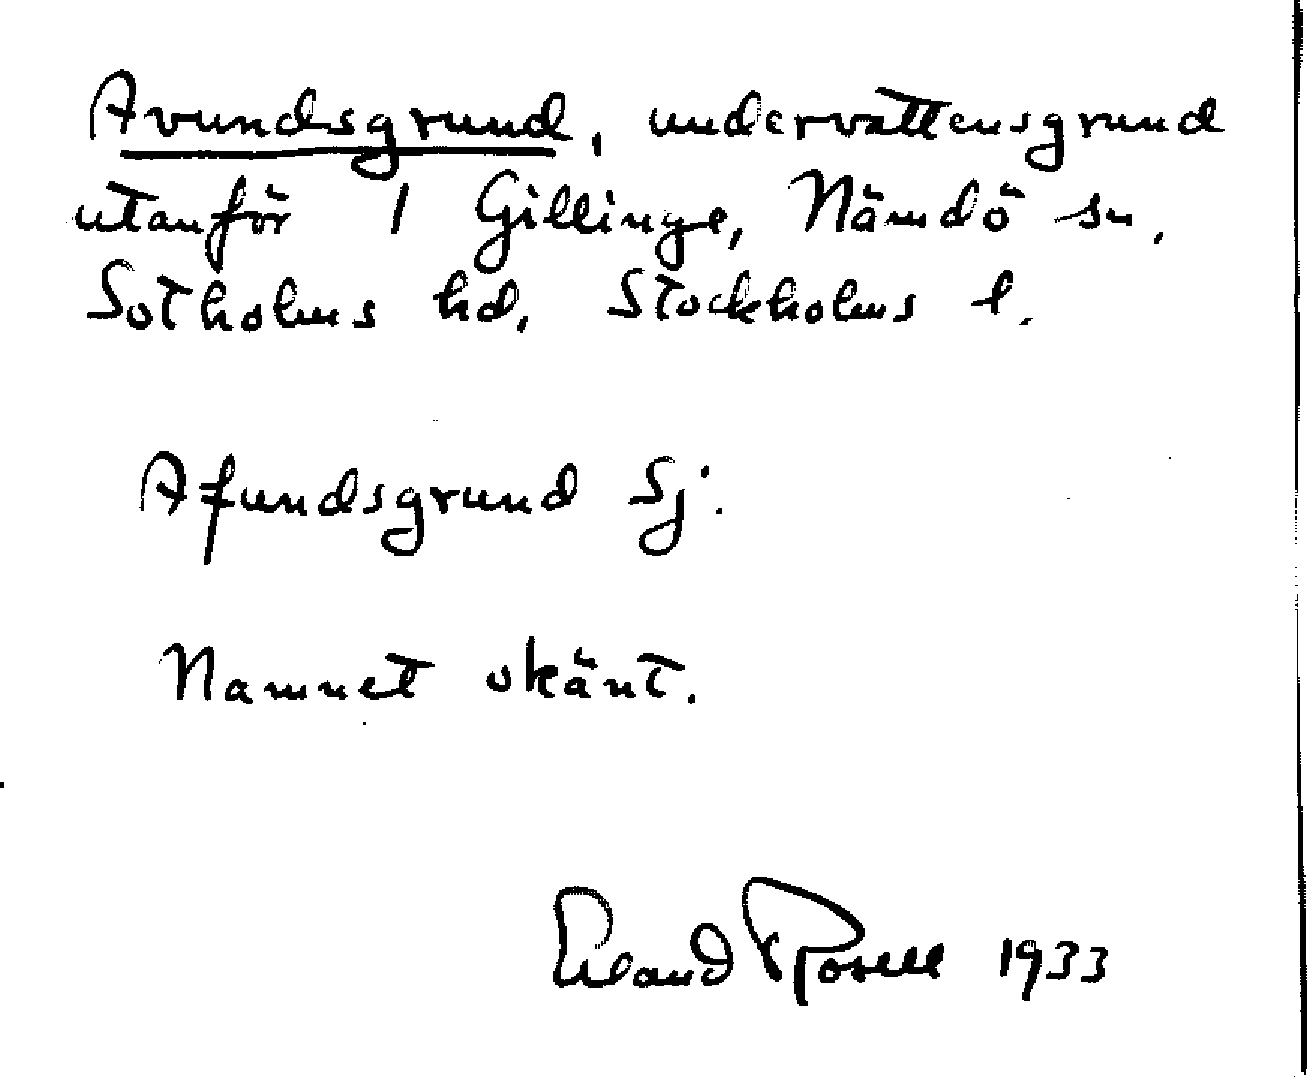 Avundsgrund, undervattensgrund
utanför 1 Gillinge, Nämdö sn,
Sotholms hd, Stockholms l.
Afundsgrund Sj.
Namnet okänt.
Erland Rosell 1933